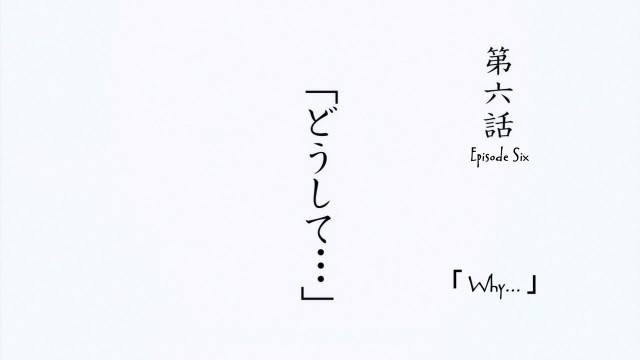 第六話
Episode Six
「どうして…」
「Why...」